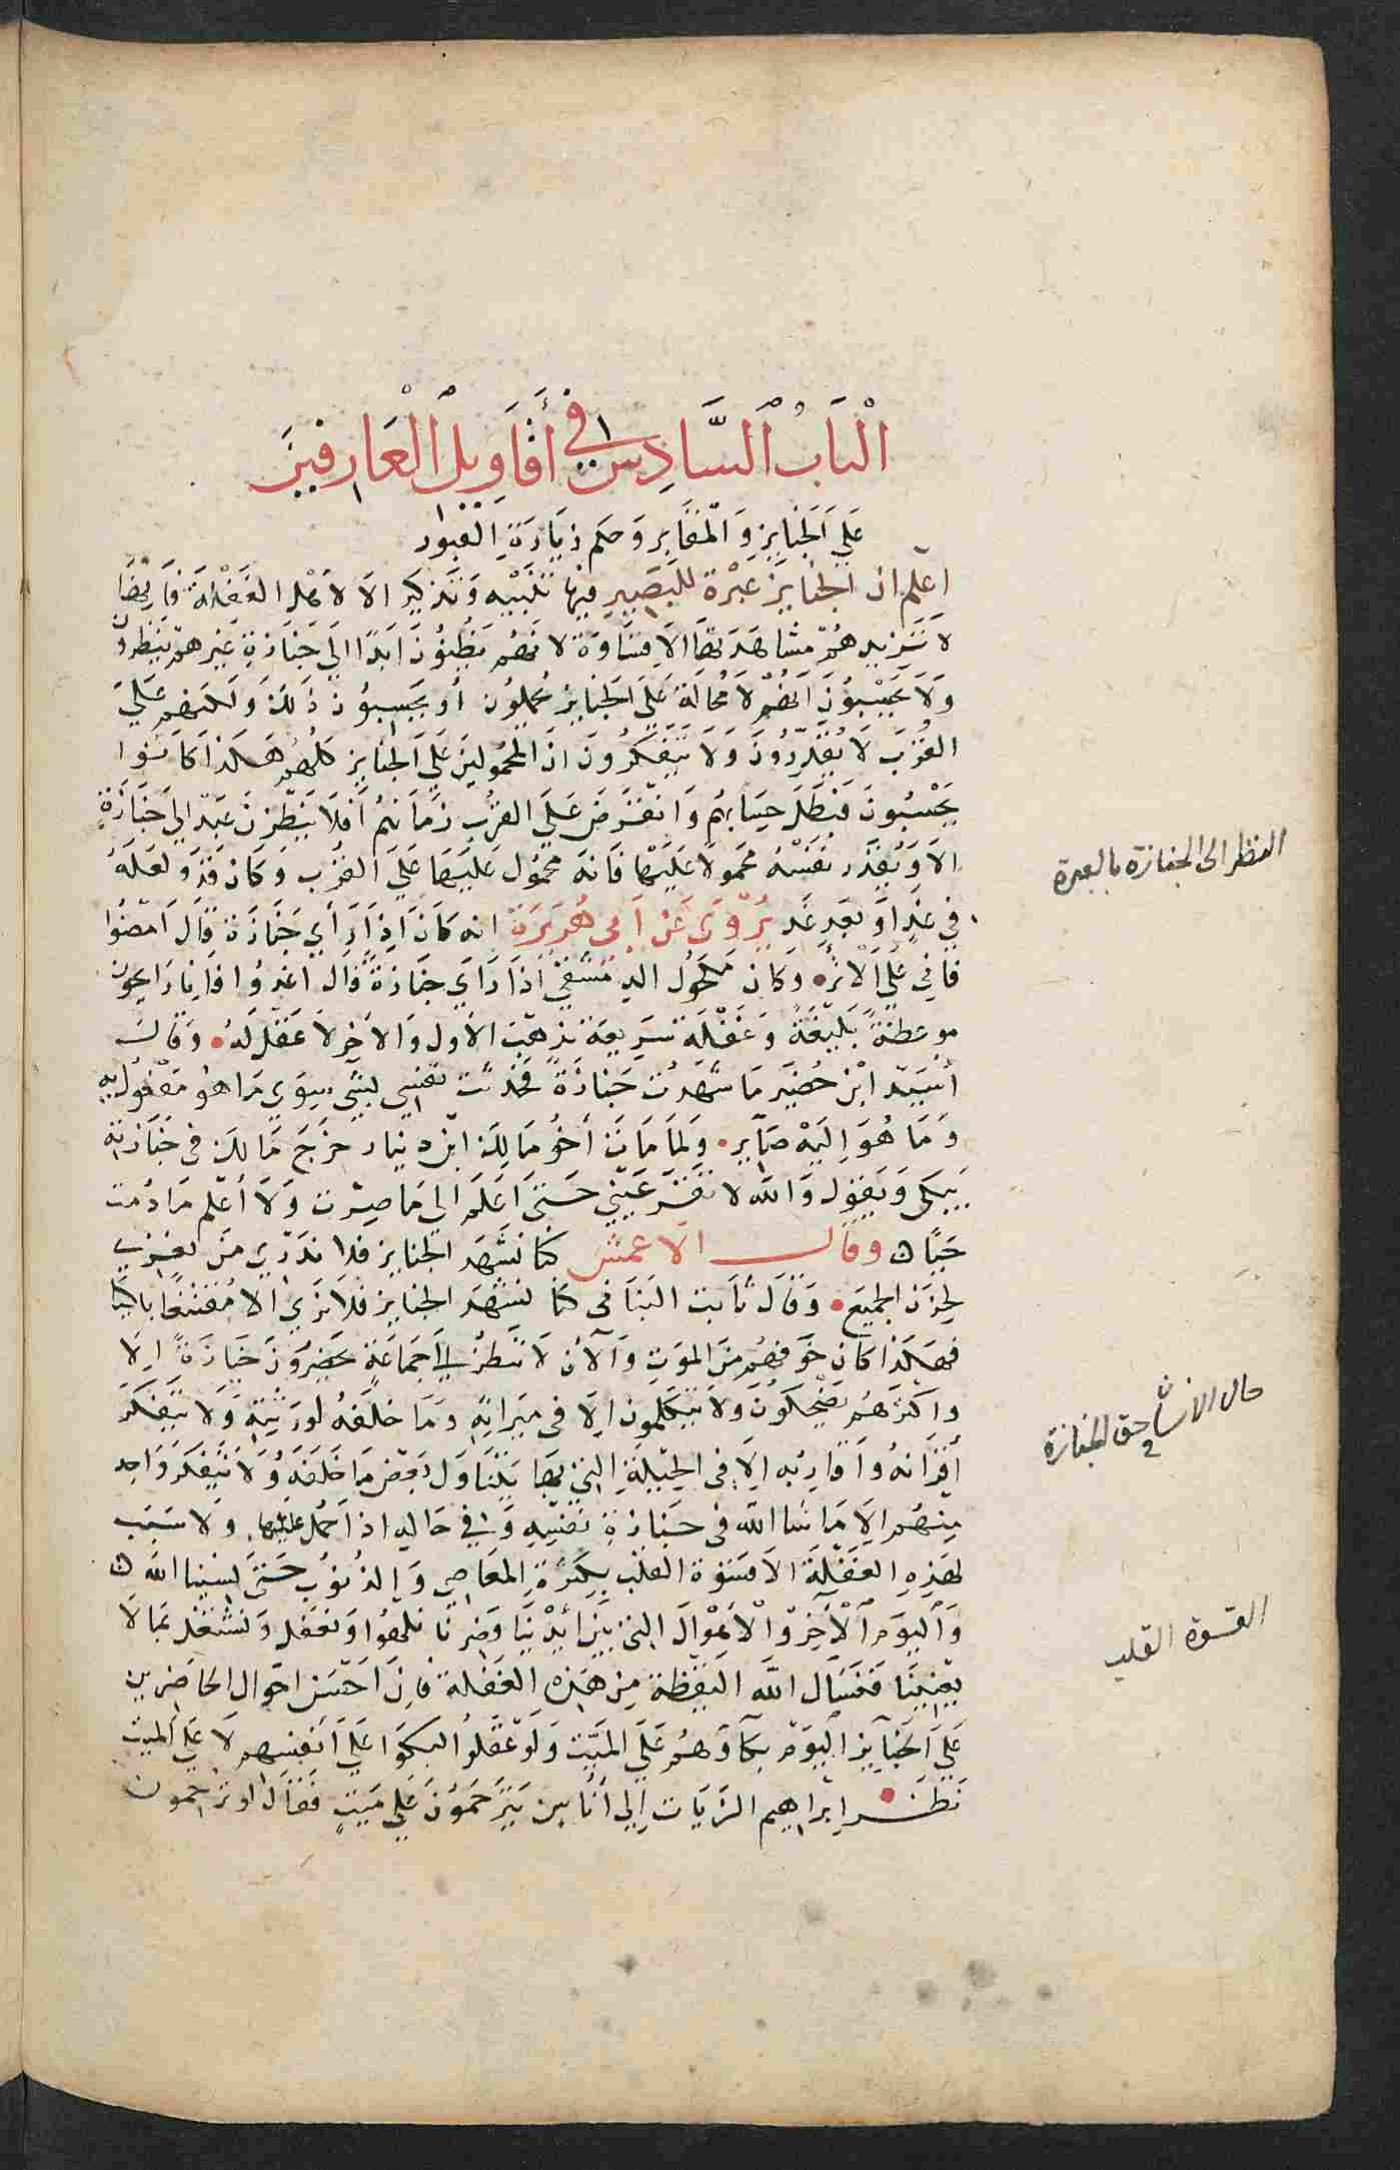 الْبَابُ السَّادِس فِي أَقَاوِيلِ الْعَارِفِينَ
عَلَى الجَنَايِزِ وَالمَقَابِرِ وَحكم زِيَارَةِ القبور
اعلم ان الجنايز عَبْرَة للبَصِيرِ فيها تَنْبيْه وَتَذكير الا لاهْل الغَفْلة فَانهَّا
لا تَزيدهُمْ مشاهَدَتهَا الا قسَاوَة لانهُم يَظنُونَ ابَدًا الي جَنَازةِ غَيْرهمْ ينظرُونَ
وَلَا يحْسبُونَ انهُمْ لَا مُحَالة عَلَى الجَنايز يُحملُون أو يحسبُون ذلكَ ولكنهم عَلَى
القُرْبَ لَا يُقَدِّرُونَ وَلَا يَتَفَكَرُونَ انَ المحمُولينَ عَلَى الجَنايز كلهُم هَكذا كانوا
يحْسبُونَ فَبطَلَ حسَابهُم وَانقرَضَ عَلَى القرُب زمَانهُم أفلا ينظرنَ عَبْد الي جَنَازَةٍ
الَا وَيُقَدّر نفسَهُ محمولًا عَليَهَا فَانه محمُول عَليهَا عَلَى القُرب وَكانْ قد ولعَلهُ
في غدٍ اوْ بَعدِ غَد يُرْوَى عَنْ ابي هُرَيرَة انه كانَ اذا رَأي جَنَازَة قالَ امْضُوا
فاني عَلَى الاثْر وَكان مكحُول الدِمَشقيْ اذا رَاي جنازة قال اغدُوا فانا رَايحون
موعظة بَليغَة وَغَفْلَة سَريعَة يذهَب الاول وَالاخر لا عَقل لهُ وَقالَ
أُسَيْد ابْن حُضَير مَا شهَدتُ جَنازَةً فحَدثت نفسي بشيء سِوَي مَا هُو مَفعُول به
وَمَا هُوَ اليَهْ صَاير وَلما مَاتَ أخُو مَالِك ابْن دينار خرَجَ مَالك في جَنازتِهِ
يَبكي وَيَقول وَالله لا تقَر عَيْني حَتى اعَلمَ الى مَا صِرْت وَلَا أعْلم مَا دُمت
حَيًّا وقال الاعمش كنا نشَهَد الجنايز فلا ندَري منَ نعزي
لحِزْن الجميَع وَقالَ ثابت البَنَاني كنا نشهَد الجنايز فلَا نرَي الا مُقنعًا باكيًا
فهكذا كان خَوفهُم منَ الموَت وَالآن لَا ننظُر الي جَمَاعَة يحضرُونَ جَنازَةً الا
واكثرهُم يَضْحكونَ ولَا يتَكلمون الا في مِيَراثه وَمَا خلفه لورثتِهِ وَلَا يَتفكر
أقرَانهُ وَاقاربُه الا في الحيْلةِ التي بهَا يَتَنَاوَل بَعْض مَا خَلفَهُ وَلَا يتَفكَر وَاحِد
منهُم الا مَا شا الله في جَنازةِ نفسِهِ وَفي حَاله اذا حُمل عَليَها وَلا سَبَب
لهَذِهِ الغَفْلَة الا قسْوَة القلب بكثرةِ المعَاصي وَالذُنوُب حَتى نسينا الله
وَالْيَوم الْآخِر والْاهْوَالَ التي بَيْن ايْدِينَا وَصرنا نلهُوا ونغفَل وَنشتغل بمَا لا
يعنينَا فَنسَال الله اليَقظَة مِن هَذِه الغَفلة فان احسن احوال الحَاضرين
عَلَى الجَنَايز اليَوم بكَاؤهُم عَلَى الميِّت وَلوَ عَقلوُا لبكوَا عَلَى أنفسِهم لا عَلَى الميّت
نَظَر ابْراهيم الزيَات الى أُناس يَترَحمُونَ عَلَى ميِّتٍ فَقالَ لو ترحمون
النظر الى الجنازة بالعبرة
حال الانسان فى حق الجنازة
القسوة القلب